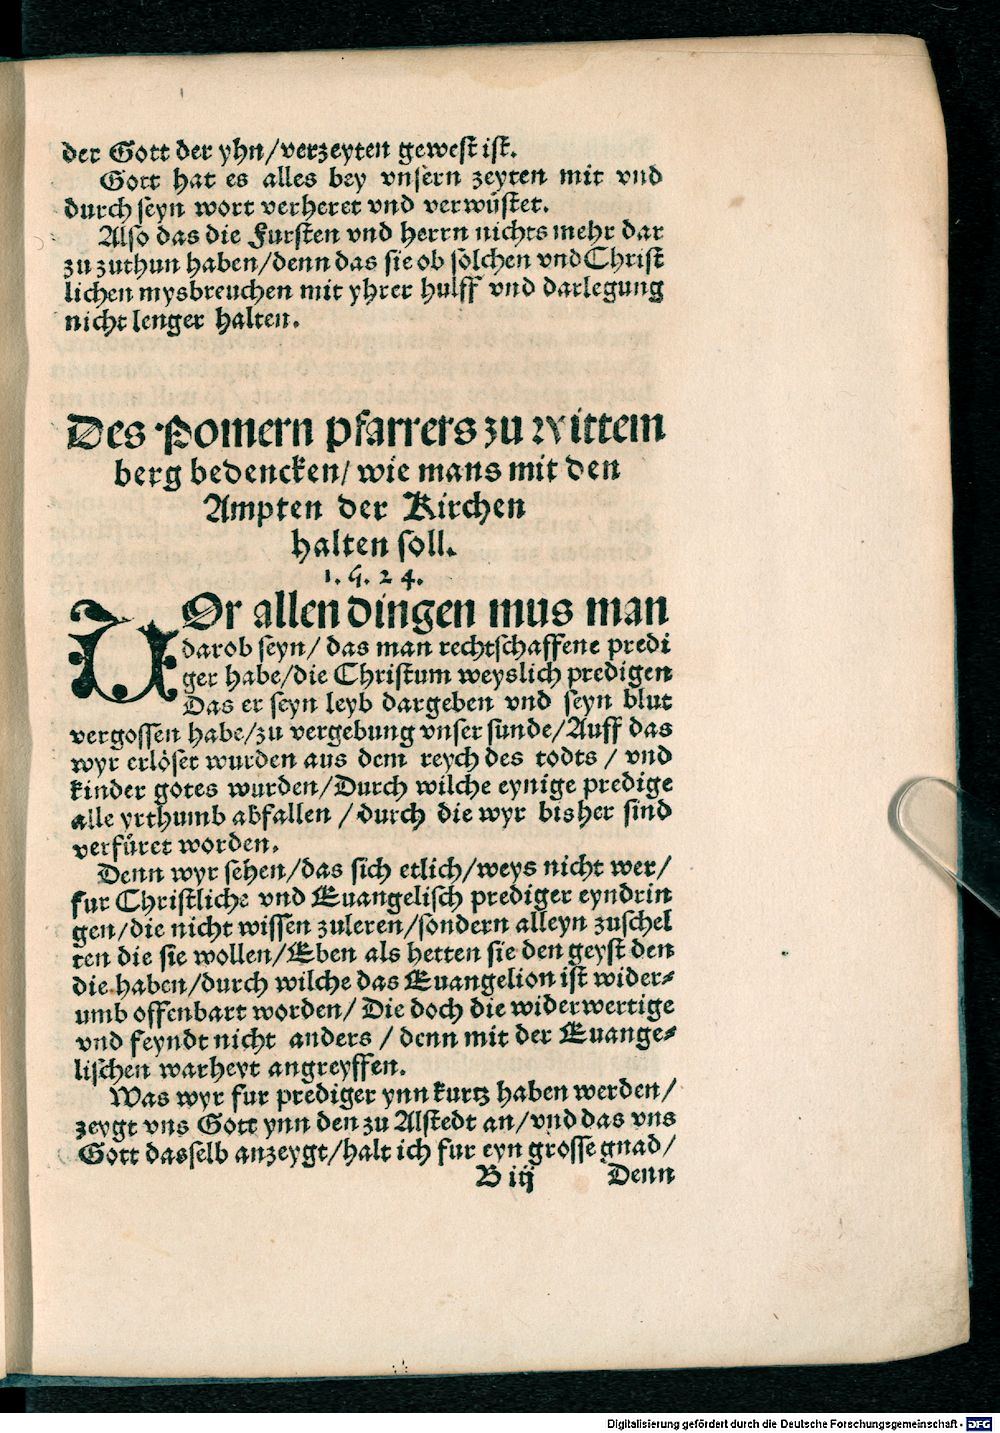 der Gott der yhn/verzeyten gewest ist.
Gott hat es alles bey vnsern zeyten mit vnd
durch seyn wort verheret vnd verwüstet.
Also das die Fursten vnd herrn nichts mehr dar
zu zuthun haben/denn das sie ob solchen vnd Christ
lichen mysbreuchen mit yhrer hulff vnd darlegung
nicht lenger halten.
Des Pomern pfarrers zu Wittem
berg bedencken/ wie mans mit den
Ampten der Kirchen
halten soll.
1. 5. 2 4.
VOr allen dingen mus man
darob seyn/ das man rechtschaffene predi
ger habe/die Christum weyslich predigen
Das er seyn leyb dargeben vnd seyn blut
vergossen habe/zu vergebung vnser sunde/Auff das
wyr erlöset wurden aus dem reych des todts / vnd
kinder gotes wurden/Durch wilche eynige predige
alle yrthumb abfallen / durch die wyr bisher sind
verfüret worden.
Denn wyr sehen/das sich etlich/weys nicht wer/
fur Christliche vnd Euangelisch prediger eyndrin
gen/die nicht wissen zuleren/sondern alleyn zuschel
ten die sie wollen/Eben als hetten sie den geyst den
die haben/durch wilche das Euangelion ist wider-
umb offenbart worden/ Die doch die widerwertige
vnd feyndt nicht anders / denn mit der Euange-
lischen warheyt angreyffen.
Was wyr fur prediger ynn kurtz haben werden/
zeygt vns Gott ynn den zu Alstedt an/vnd das vns
Gott dasselb anzeygt/halt ich fur eyn grosse gnad/
B iij Denn
Digitalisierung gefördert durch die Deutsche Forschungsgemeinschaft - DFG